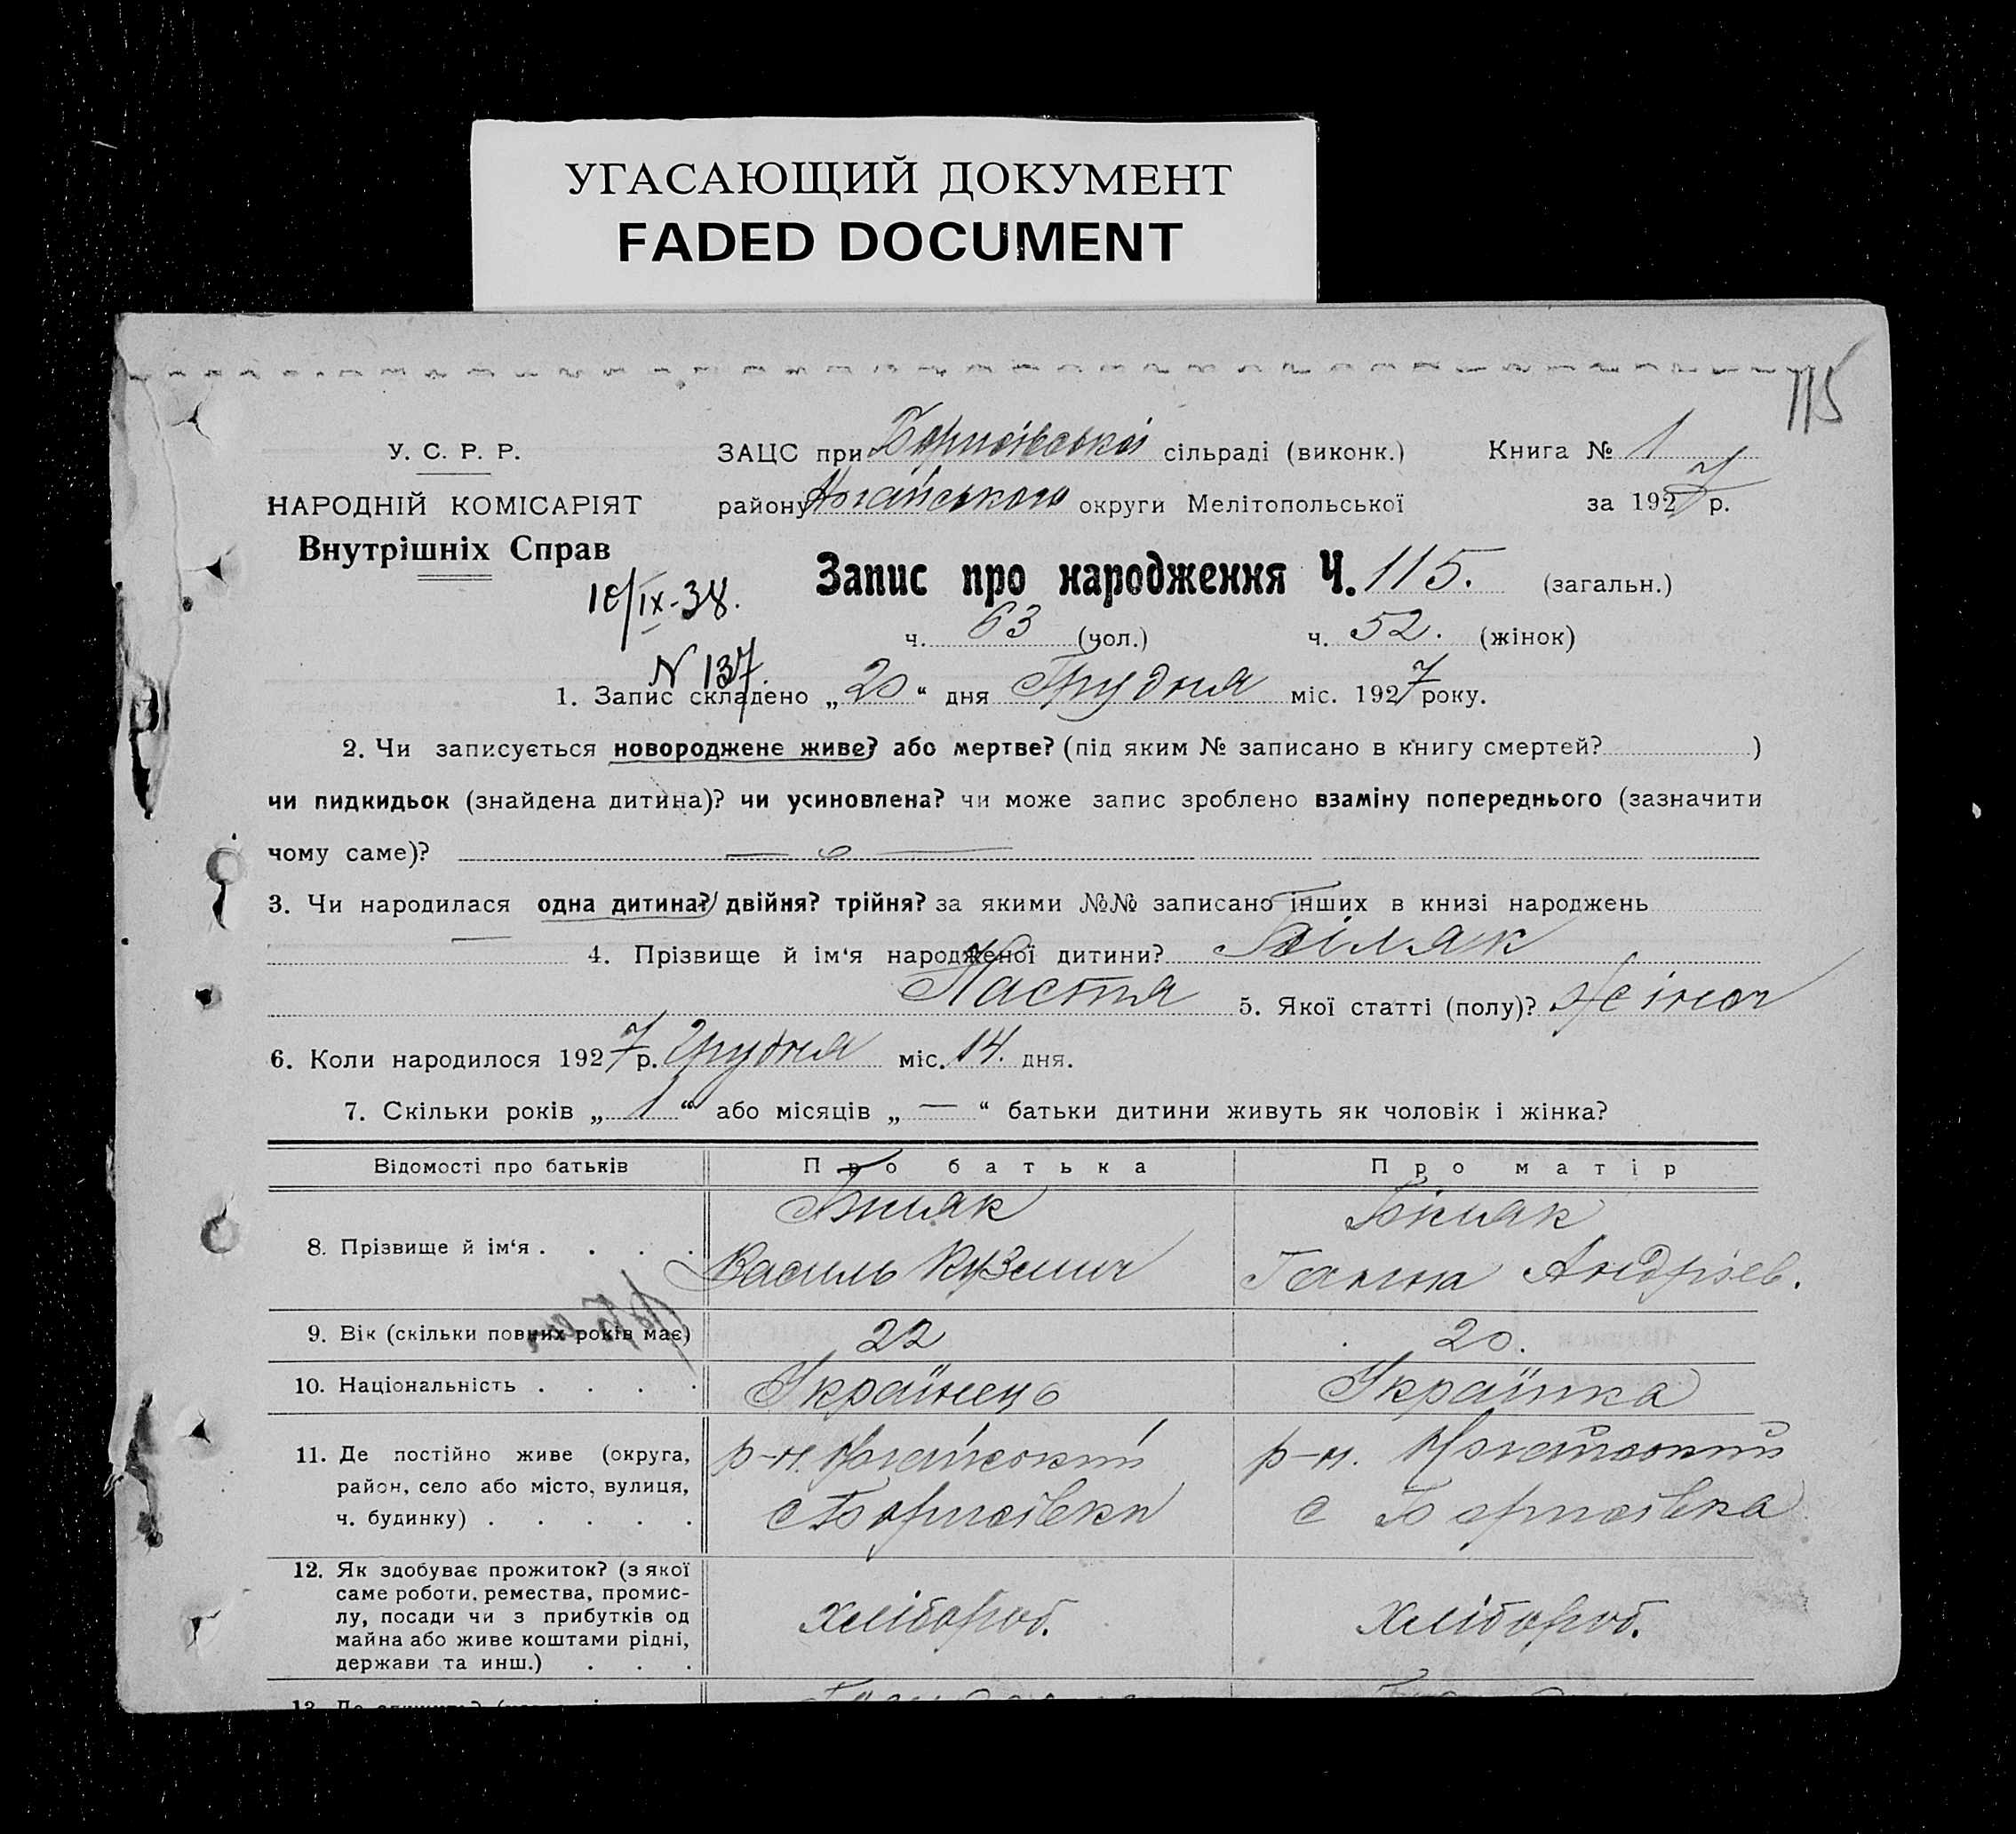 УГАСАЮЩИЙ ДОКУМЕНТ
FADED DOCUMENT
115
У. С. Р. Р.
ЗАЦС при Борисівській сільраді (виконк.) Книга № 1
НАРОДНІЙ КОМІСАРІЯТ
району Ногайського округи Мелітопольської за 1927 р.
Внутрішніх Справ
Запис про народження Ч. 115. (загальн.)
10/IX-38.
ч. 63 (чол.) ч. 52. (жінок)
N 137.
1. Запис складено „20“ дня Грудня міс. 1927 року.
2. Чи записується новороджене живе? або мертве? (під яким № записано в книгу смертей? )
чи пидкидьок (знайдена дитина)? чи усиновлена? чи може запис зроблено взаміну попереднього (зазначити
чому саме)? —
3. Чи народилася одна дитина? двійня? трійня? за якими №№ записано інших в книзі народжень
— 4. Прізвище й ім‘я народженої дитини? Біляк
Настя 5. Якої статті (полу)? Жіноч
6. Коли народилося 1927 р. Грудня міс. 14. дня.
7. Скільки років „1“ або місяців „—“ батьки дитини живуть як чоловік і жінка?
Відомості про батьків Про батька Про матір
8. Прізвище й ім‘я . . . . Біляк Біляк
Василь Кузьмич Ганна Андріев.
9. Вік (скільки повних років має) 22 20.
10. Національність . . . . Українець Українка
11. Де постійно живе (округа, р-н. Ногайський р-н. Ногайський
район, село або місто, вулиця, с Борисівки с Борисівка
ч. будинку) . . . . .
12. Як здобуває прожиток? (з якої
саме роботи, ремества, промис-
лу, посади чи з прибутків од хлібороб. хлібороб.
майна або живе коштами рідні,
держави та инш.) . . .